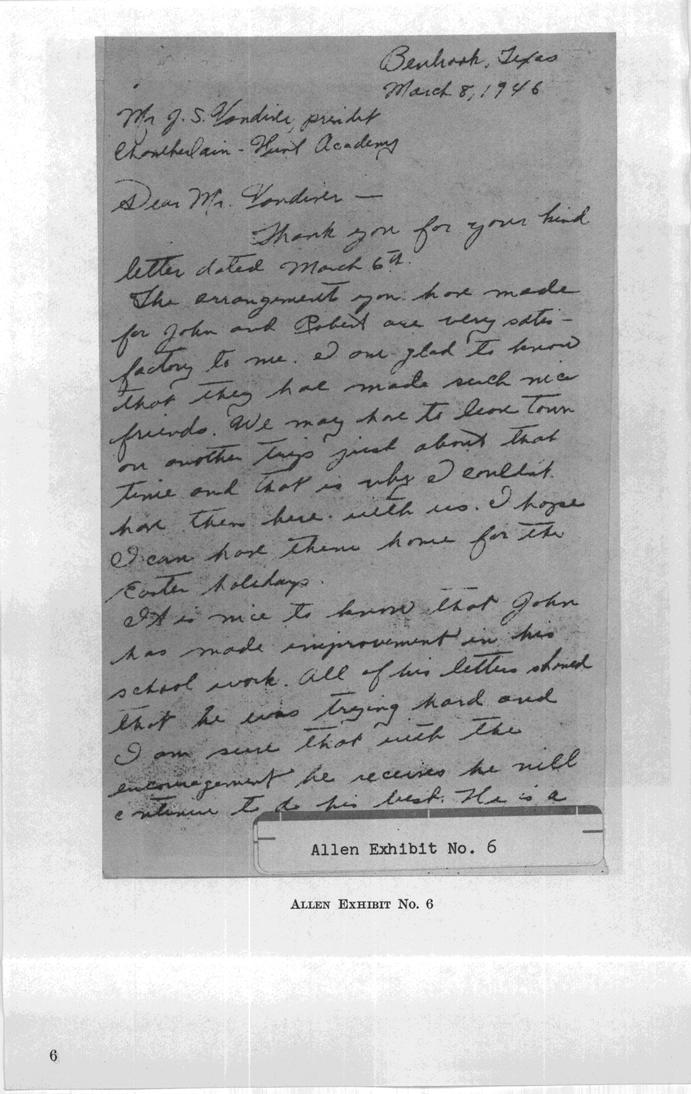 Benbrook, Texas
March 8, 1946
Mr J. S. Vandiver, presidet
Chamberlain-Hunt Academy
Dear Mr. Vandiver —
Thank you for your kind
letter dated March 6th.
The arrangement you have made
for John and Robert are very satis-
factory to me. I am glad to know
that they have made such nice
friends. We may have to leave town
on another trip just about that
time and that is why I couldn't
have them here with us. I hope
I can have them home for the
Easter holidays.
It is nice to know that John
has made improvement in his
school work. All of his letters showed
that he was trying hard and
I am sure that with the
encouragement he receives he will
continue to do his best. He is a
Allen Exhibit No. 6
ALLEN EXHIBIT No. 6
6